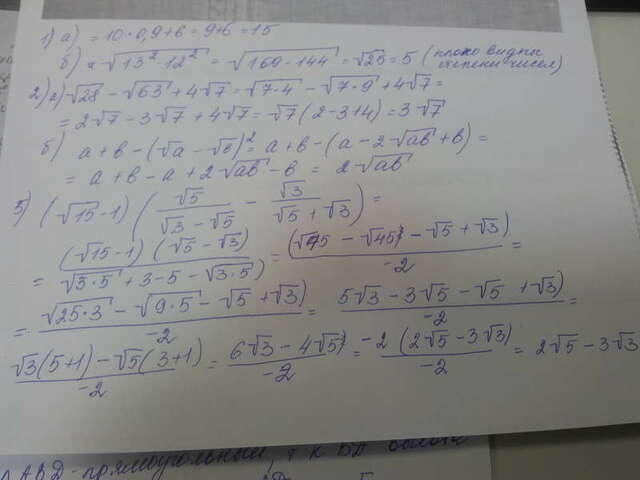 1) а) = 10 · 0,9 + 6 = 9 + 6 = 15
б) = √(13² - 12²) = √(169 - 144) = √25 = 5 (плохо видны степени чисел)
2) а) √28 - √63 + 4√7 = √(7·4) - √(7·9) + 4√7 =
= 2√7 - 3√7 + 4√7 = √7(2-3+4) = 3√7
б) a + b - (√a - √b)² = a + b - (a - 2√ab + b) =
= a + b - a + 2√ab - b = 2√ab
3) (√15 - 1) (√5/(√3 - √5) - √3/(√5 + √3)) =
= (√15 - 1)(√5 - √3)/(√(3·5) + 3 - 5 - √(3·5)) = (√75 - √45 - √5 + √3)/-2 =
= (√(25·3) - √(9·5) - √5 + √3)/-2 = (5√3 - 3√5 - √5 + √3)/-2 =
(√3(5+1) - √5(3+1))/-2 = (6√3 - 4√5)/-2 = -2(2√5 - 3√3)/-2 = 2√5 - 3√3
ABD - прямоугольный, т к BA